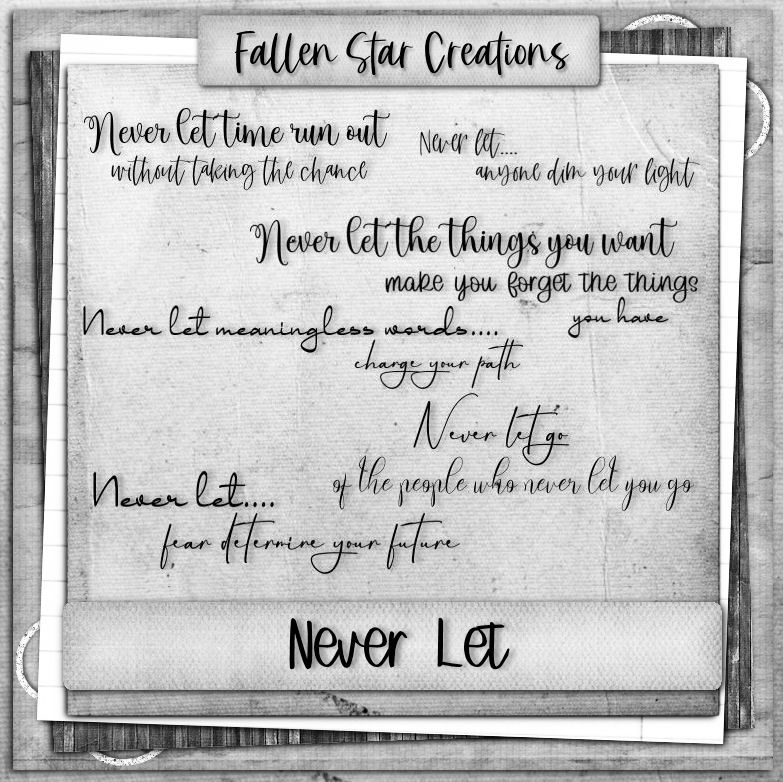 Fallen Star Creations
Never let time run out
without taking the chance
Never let....
anyone dim your light
Never let the things you want
make you forget the things
you have
Never let meaningless words....
change your path
Never let go
of the people who never let you go
Never let....
fear determine your future
Never Let